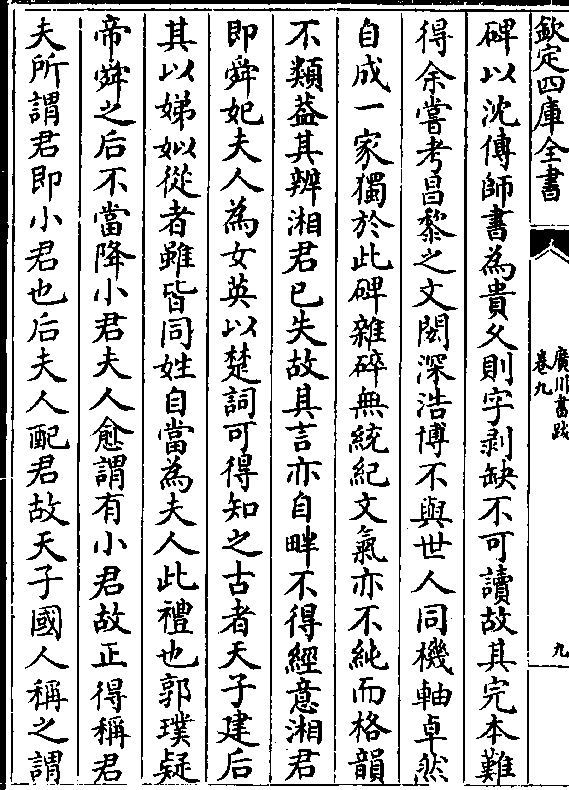 欽定四庫全書
廣川書跋
卷九
九
碑以沈傳師書為貴父則字剥缺不可讀故其完本難
得余嘗考昌黎之文閎深浩博不與世人同機軸卓然
自成一家獨於此碑雜碎無統紀文氣亦不純而格韻
不類葢其辨湘君已失故其言亦自畔不得經意湘君
即舜妃夫人為女英以楚詞可得知之古者天子建后
其以娣姒從者雖皆同姓自當為夫人此禮也郭璞疑
帝舜之后不當降小君夫人愈謂有小君故正得稱君
夫所謂君即小君也后夫人配君故天子國人稱之謂